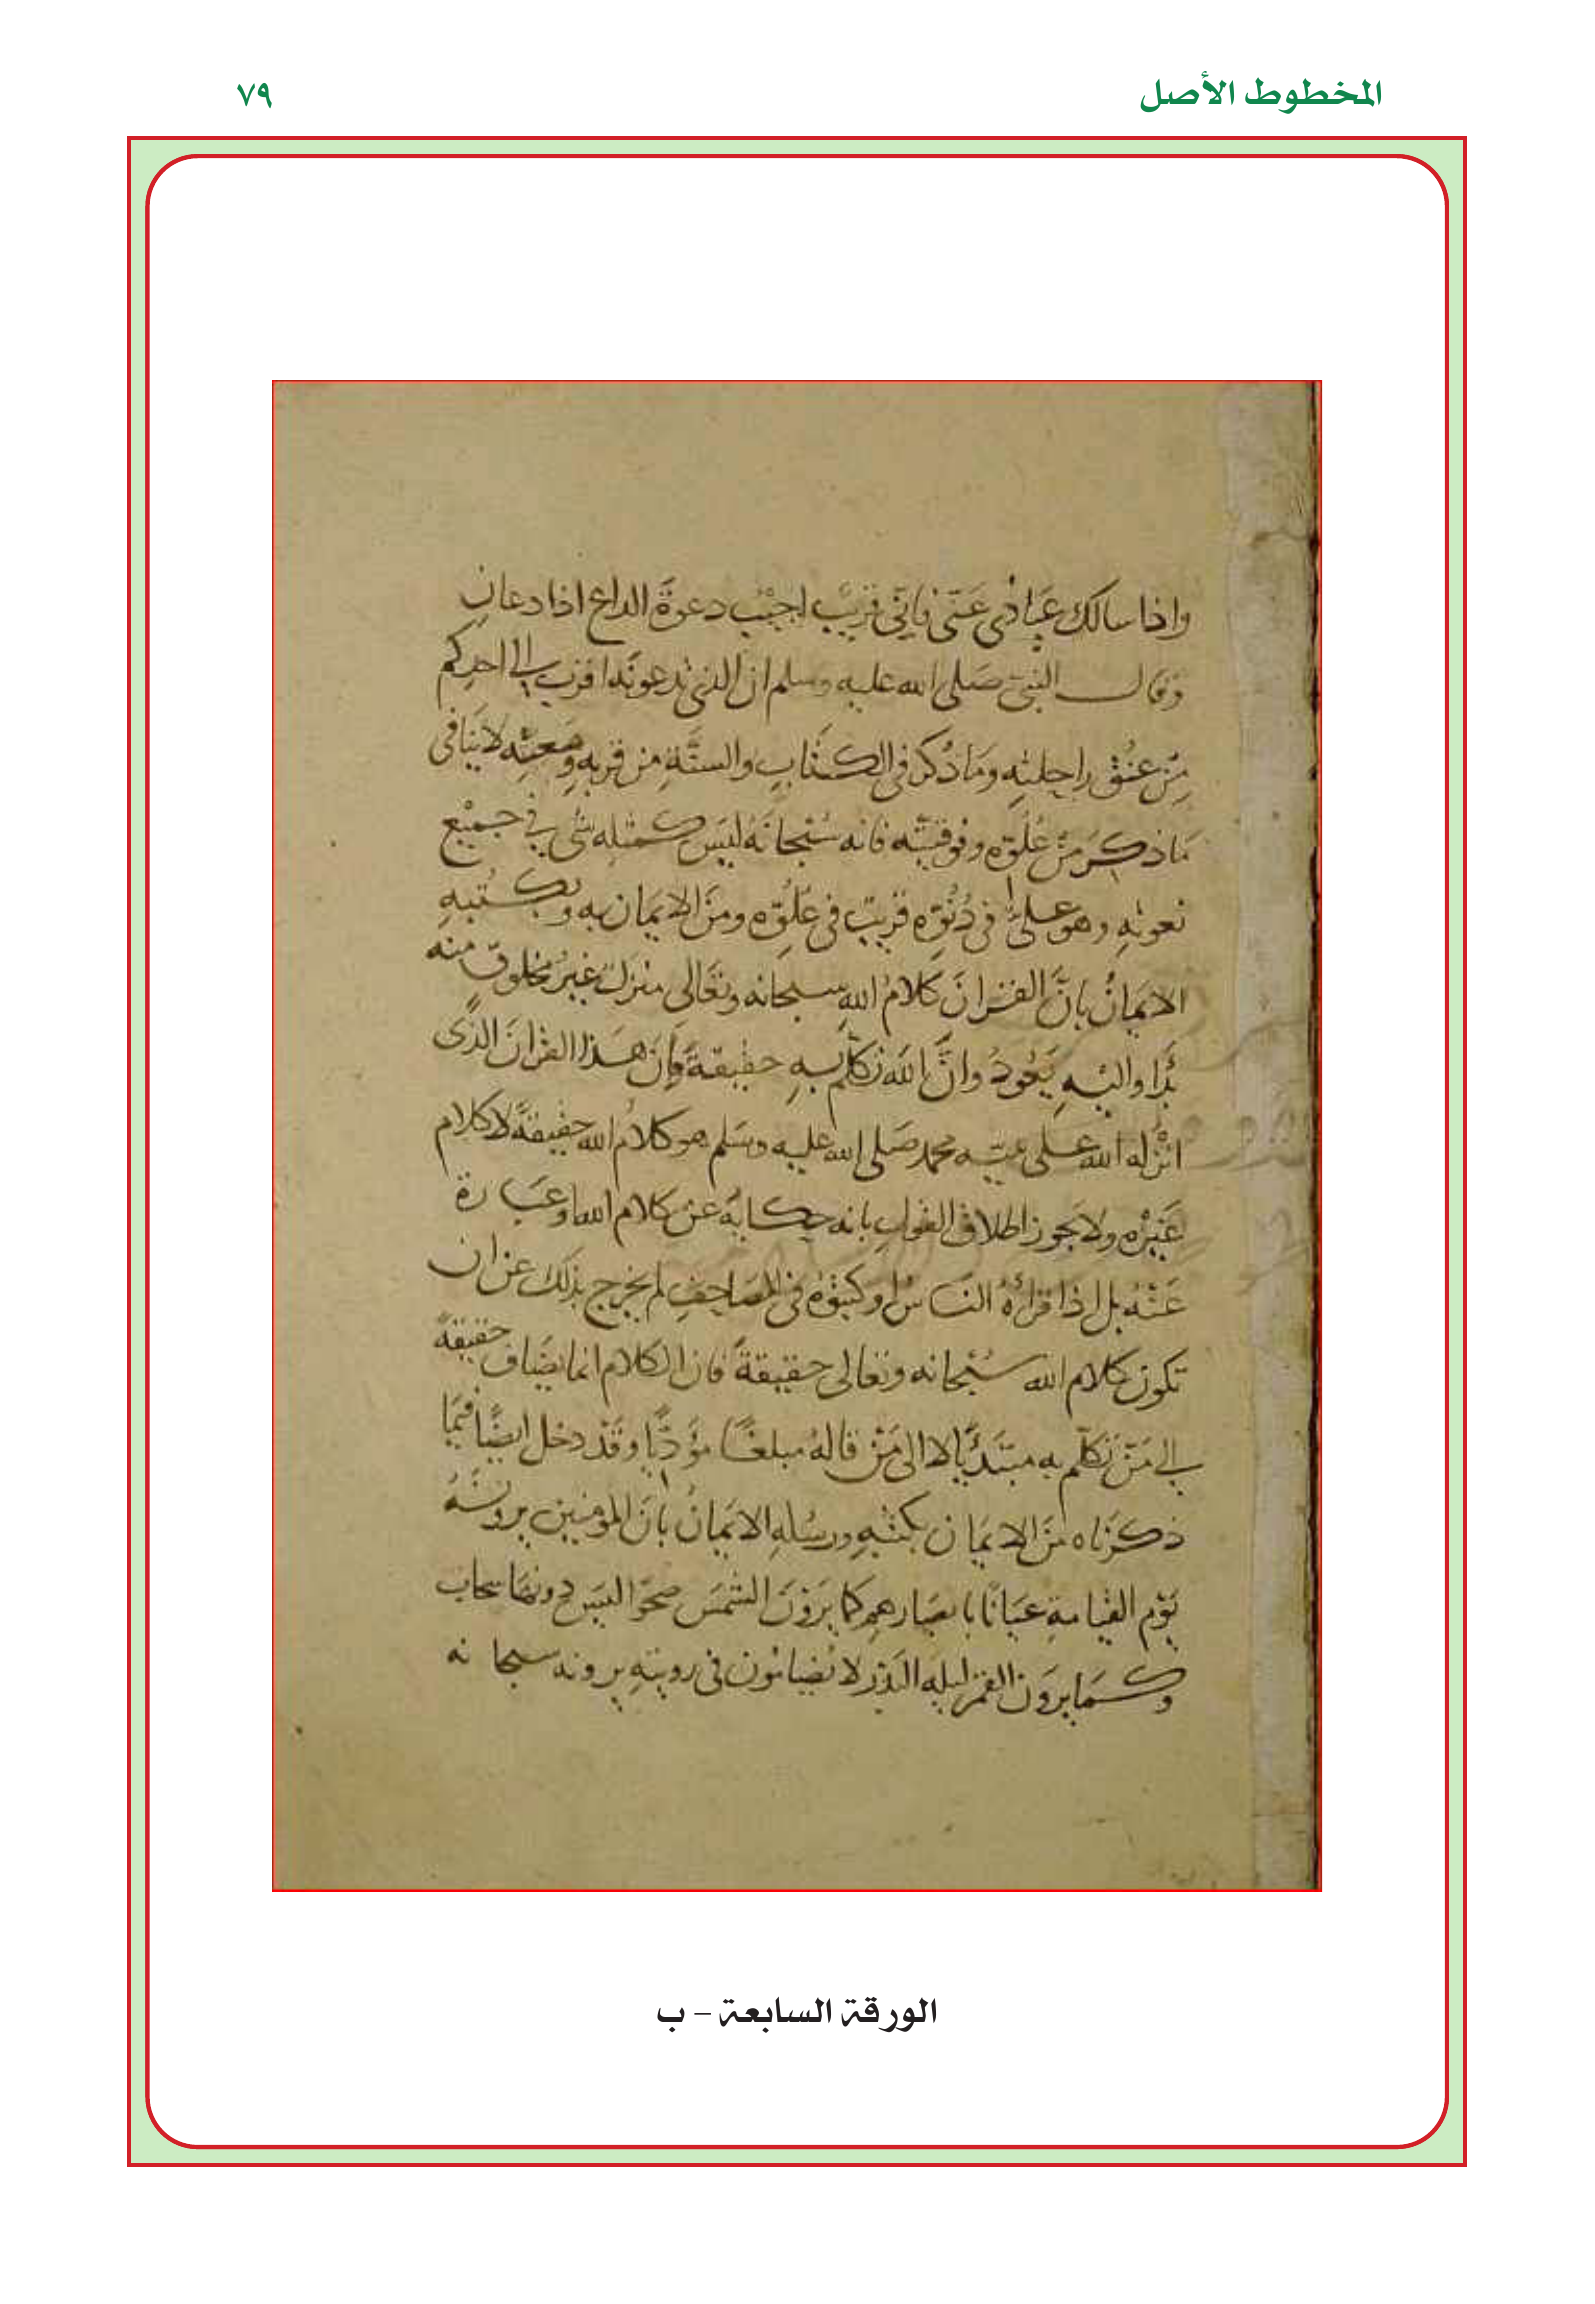 المخطوط الأصل
٧٩
واذا سالك عبادى عنى فانى قريب اجيب دعوة الداع اذا دعان
وقال النبى صلى الله عليه وسلم ان الذى تدعونه اقرب الى احدكم
من عنق راحلته وما ذكر فى الكتاب والسنة من قربه ومعيته لا ينافى
ما ذكر من علوه وفوقيته فانه سبحانه ليس كمثله شى في جميع
نعوته وهو على فى دنوه قريب فى علوه ومن الايمان به وبكتبه
الايمان بان القران كلام الله سبحانه وتعالى منزل غير مخلوق منه
بدا واليه يعود وان الله تكلم به حقيقة وان هذا القران الذى
انزله الله على محمد صلى الله عليه وسلم هو كلام الله حقيقة لا كلام
غيره ولا يجوز اطلاق القول بانه حكاية عن كلام الله او عبارة
عنه بل اذا قراه الناس او كتبوه فى المصاحف لم يخرج بذلك عن ان
تكون كلام الله سبحانه وتعالى حقيقة فان الكلام انما يضاف حقيقة
الى من تكلم به مبتديا لا الى من قاله مبلغا مؤديا وقد دخل ايضا فيما
ذكرناه من الايمان بكتبه ورسله الايمان بان المؤمنين يرونه
يوم القيامة عيانا بابصارهم كما يرون الشمس صحوا ليس دونها سحاب
وكما يرون القمر ليله البدر لا يضامون فى رويته يرونه سبحانه
الورقة السابعة – ب